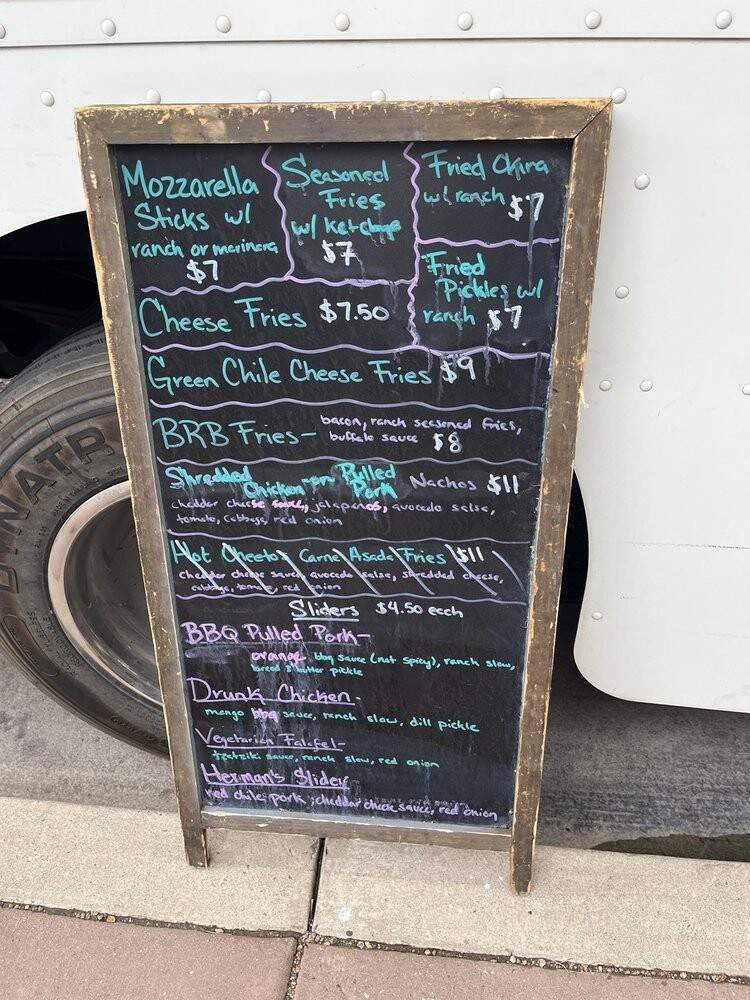 Mozzarella
Sticks w/
ranch or marinara
$7
Seasoned
Fries
w/ Ketchup
$7
Fried Okra
w/ ranch $7
Fried
Pickles w/
ranch $7
Cheese Fries $7.50
Green Chile Cheese Fries $9
BRB Fries- bacon, ranch seasoned fries,
buffalo sauce $8
Shredded Chicken or Pulled Pork Nachos $11
cheddar cheese sauce, jalapenos, avocado salsa,
tomato, cabbage, red onion
Hot Cheetos Carne Asada Fries $11
cheddar cheese sauce, avocado salsa, shredded cheese,
cabbage, tomato, red onion
Sliders $4.50 each
BBQ Pulled Pork-
orange bbq sauce (not spicy), ranch slaw,
bread & butter pickle
Drunk Chicken-
mango bbq sauce, ranch slaw, dill pickle
Vegetarian Falafel-
tzatziki sauce, ranch slaw, red onion
Herman's Slider
red chile pork, cheddar cheese sauce, red onion